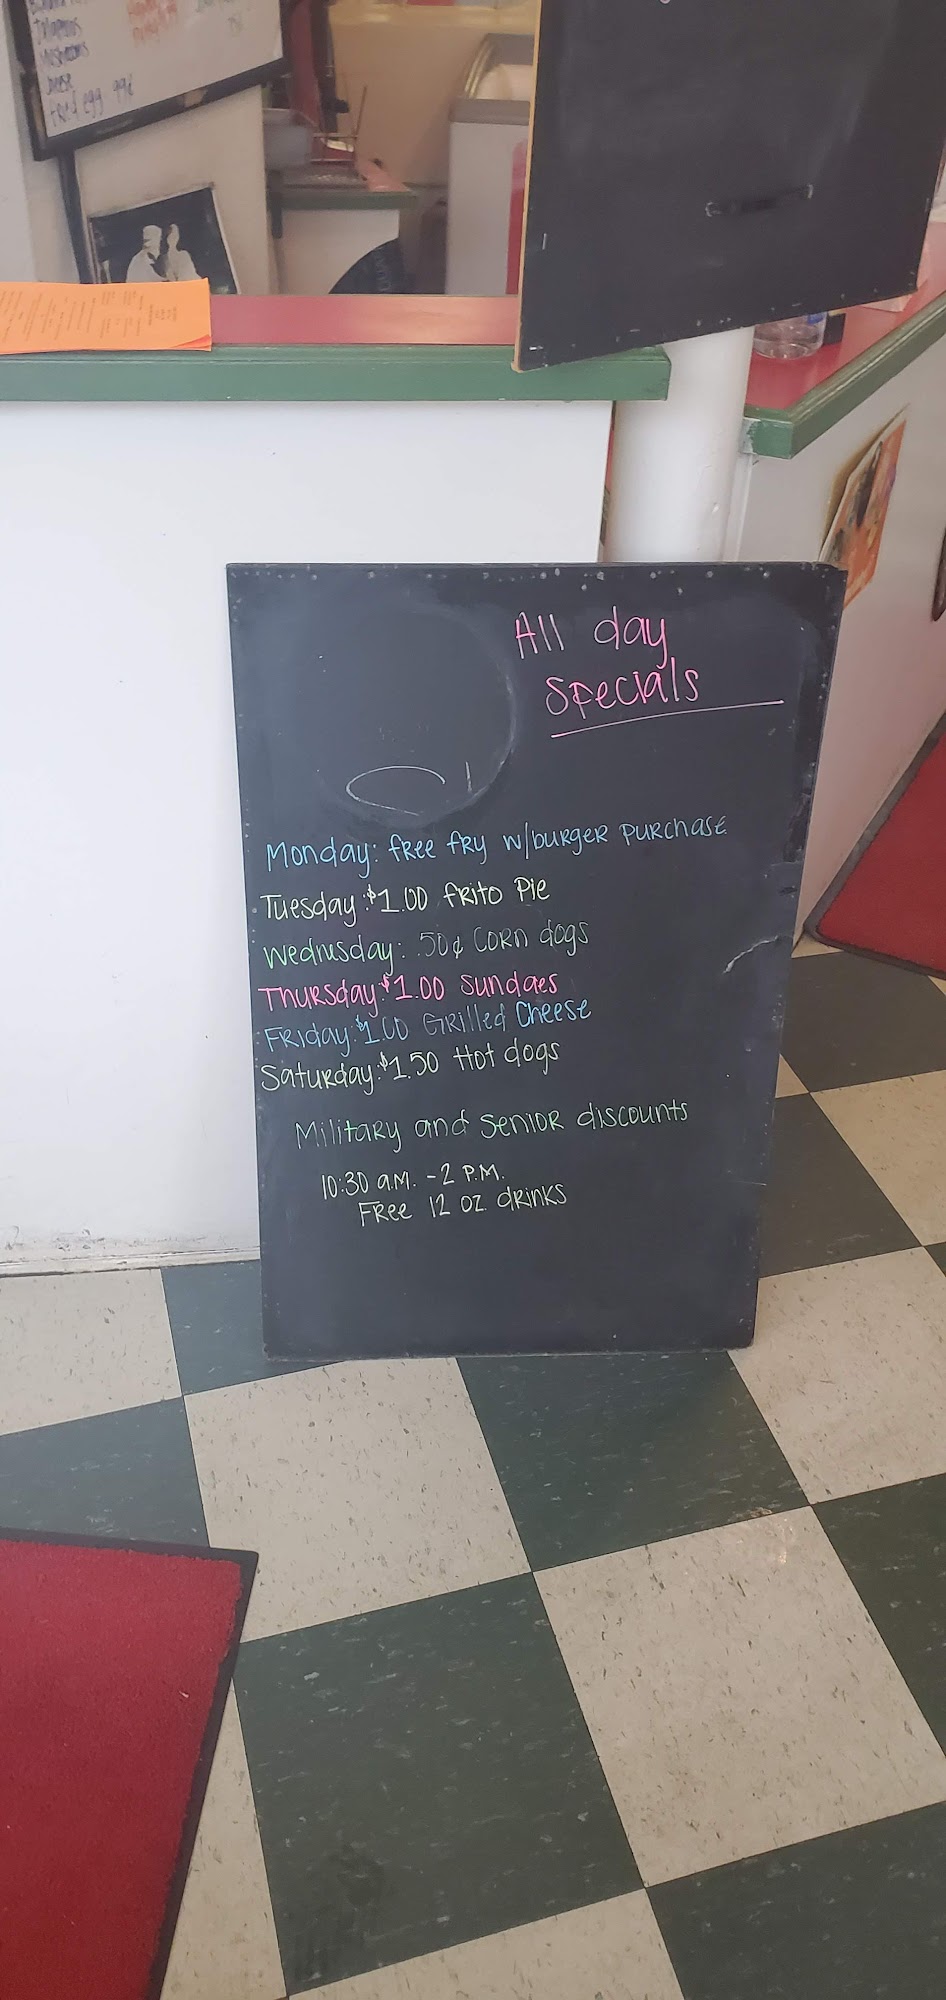 Jalapenos
Mushrooms
Cheese
Fried egg 99¢
All day
Specials
Monday: free fry w/burger purchase
Tuesday: $1.00 Frito Pie
Wednesday: .50¢ Corn dogs
Thursday: $1.00 Sundaes
Friday: $1.00 Grilled Cheese
Saturday: $1.50 Hot dogs
Military and Senior discounts
10:30 a.m. - 2 P.M.
Free 12 oz. drinks